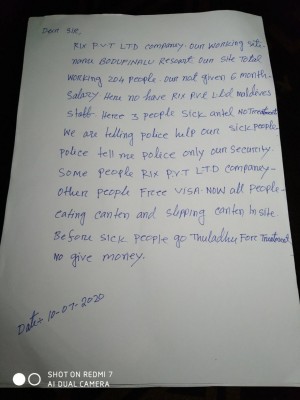 Dear Sir,
RIX PVT LTD company. our working site
name BODUFINALU Resort. our site Total
working 204 people. our not given 6 month
Salary Here no have RIX PVT Ltd maldives
Staff Here 3 people sick antel No Treatment
we are telling police help our sick people
police tell me police only our Security.
Some people RIX PVT LTD company-
other people Free VISA NOW all people-
eating canten and slipping canten In site.
Before sick people go Thuladhu Fore Treatment
No give money.
Date:- 10-07-2020
SHOT ON REDMI 7
AI DUAL CAMERA